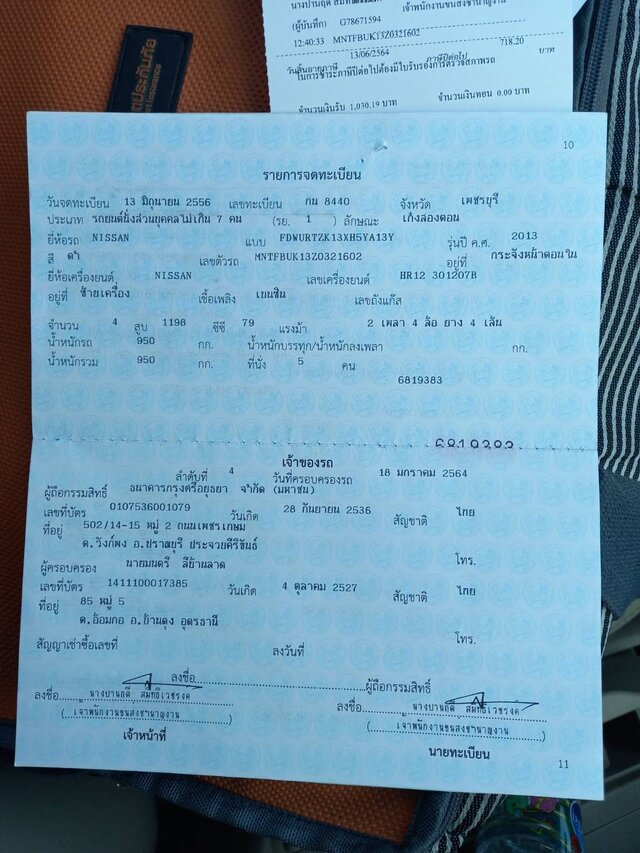 ตุประกันภัย
(ผู้บันทึก) G78671594 เจ้าพนักงานขนส่งชำนาญงาน
12:40:33 MNTFBUK13Z0321602
วันสิ้นอายุภาษี 13/06/2564 ภาษีปีต่อไป 718.20 บาท
ในการชำระภาษีปีต่อไปต้องมีใบรับรองการตรวจสภาพรถ
จำนวนเงินรับ 1,030.19 บาท จำนวนเงินทอน 0.00 บาท
10
รายการจดทะเบียน
วันจดทะเบียน 13 มิถุนายน 2556 เลขทะเบียน กน 8440 จังหวัด เพชรบุรี
ประเภท รถยนต์นั่งส่วนบุคคลไม่เกิน 7 คน (รย. 1 ) ลักษณะ เก๋งสองตอน
ยี่ห้อรถ NISSAN แบบ FDWURTZK13XH5YA13Y รุ่นปี ค.ศ. 2013
สี ดำ เลขตัวรถ MNTFBUK13Z0321602 อยู่ที่ กระจังหน้าตอนใน
ยี่ห้อเครื่องยนต์ NISSAN เลขเครื่องยนต์ HR12 301207B
อยู่ที่ ซ้ายเครื่อง เชื้อเพลิง เบนซิน เลขถังแก๊ส
จำนวน 4 สูบ 1198 ซีซี 79 แรงม้า 2 เพลา 4 ล้อ ยาง 4 เส้น
น้ำหนักรถ 950 กก. น้ำหนักบรรทุก/น้ำหนักลงเพลา กก.
น้ำหนักรวม 950 กก. ที่นั่ง 5 คน
6819383
6819383
เจ้าของรถ
ลำดับที่ 4 วันที่ครอบครองรถ 18 มกราคม 2564
ผู้ถือกรรมสิทธิ์ ธนาคารกรุงศรีอยุธยา จำกัด (มหาชน)
เลขที่บัตร 0107536001079 วันเกิด 28 กันยายน 2536 สัญชาติ ไทย
ที่อยู่ 502/14-15 หมู่ 2 ถนนเพชรเกษม
ต.วังก์พง อ.ปราณบุรี ประจวบคีรีขันธ์ โทร.
ผู้ครอบครอง นายมนตรี ลีบ้านลาด
เลขที่บัตร 1411100017385 วันเกิด 4 ตุลาคม 2527 สัญชาติ ไทย
ที่อยู่ 85 หมู่ 5
ต.อ้อมกอ อ.บ้านดุง อุดรธานี โทร.
สัญญาเช่าซื้อเลขที่ ลงวันที่
ลงชื่อ ผู้ถือกรรมสิทธิ์
ลงชื่อ นางปานฤดี สมิทธิเวชรงค์ ลงชื่อ นางปานฤดี สมิทธิเวชรงค์
(เจ้าพนักงานขนส่งชำนาญงาน) (เจ้าพนักงานขนส่งชำนาญงาน)
เจ้าหน้าที่ นายทะเบียน
11